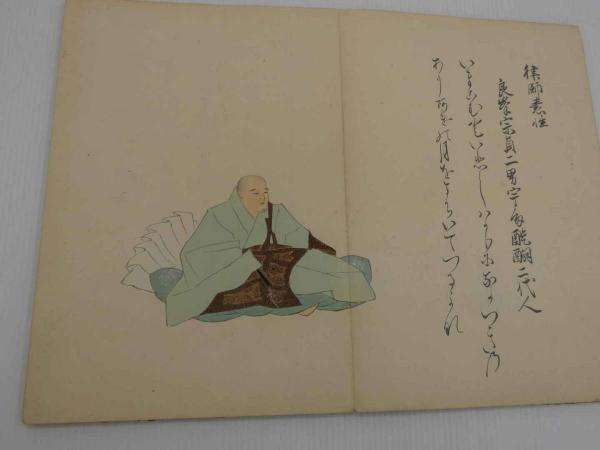 律師素性
良峯宗貞二男宇多醍醐二代人
いまこむといひしはかりに長月の
あり明の月をまちいてつるかな